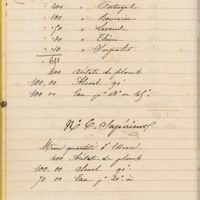 " 200 " Portugal
" 100 " Romarin
" 50 " Lavande
" 20 " Thim
" 10 "
400 Acétate de plomb
100,00 Alcool 90°
100,00 Eau
N° 2. Supérieur
Même quantité d'Essence
400 Acétate de plomb
100,00 alcool 90°
70,00 Eau